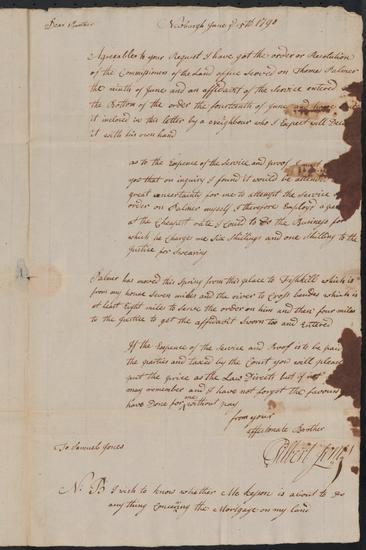 Dear Brother Newburgh June ye 15th 1790
Agreeable to your Request I have got the order or Resolution
of the Commissioners of the Land office Served on Thomas Palmer
the ninth of June and an affidavit of the Service entered
the Bottom of the order the fourteenth of June and
it inclosed in this letter by a neighbour who I Expect will
it with his own hand
as to the Expence of the Service and proof
yos that on inquiry I found it would be
great uncertainty for me to attempt the Service
order on Palmer myself I therefore Employd a
at the Cheapest rate I Could to do the Business for
which he Charge me Six Shillings and one Shilling to the
Justice for Swearing
Palmer has moved this Spring from this place to Fishkill which is
from my house Seven miles and the river to Cross besides which is
at least Eight mile to Serve the order on him and then four miles
to the Justice to get the affidavit Sworn too and Entered
If the Expence of the Service and Proof is to be paid
the parties and taxed by the Court you will please
put the price as the Law Directs but if not
may remember and I have not forgot the favours
have Done for me without pay
from your
affectionate Brother
Gilbert Jones
To Samuel Jones
N: B I wish to know whether Mc keson is about to do
any thing Concerning the Mortgage on my land